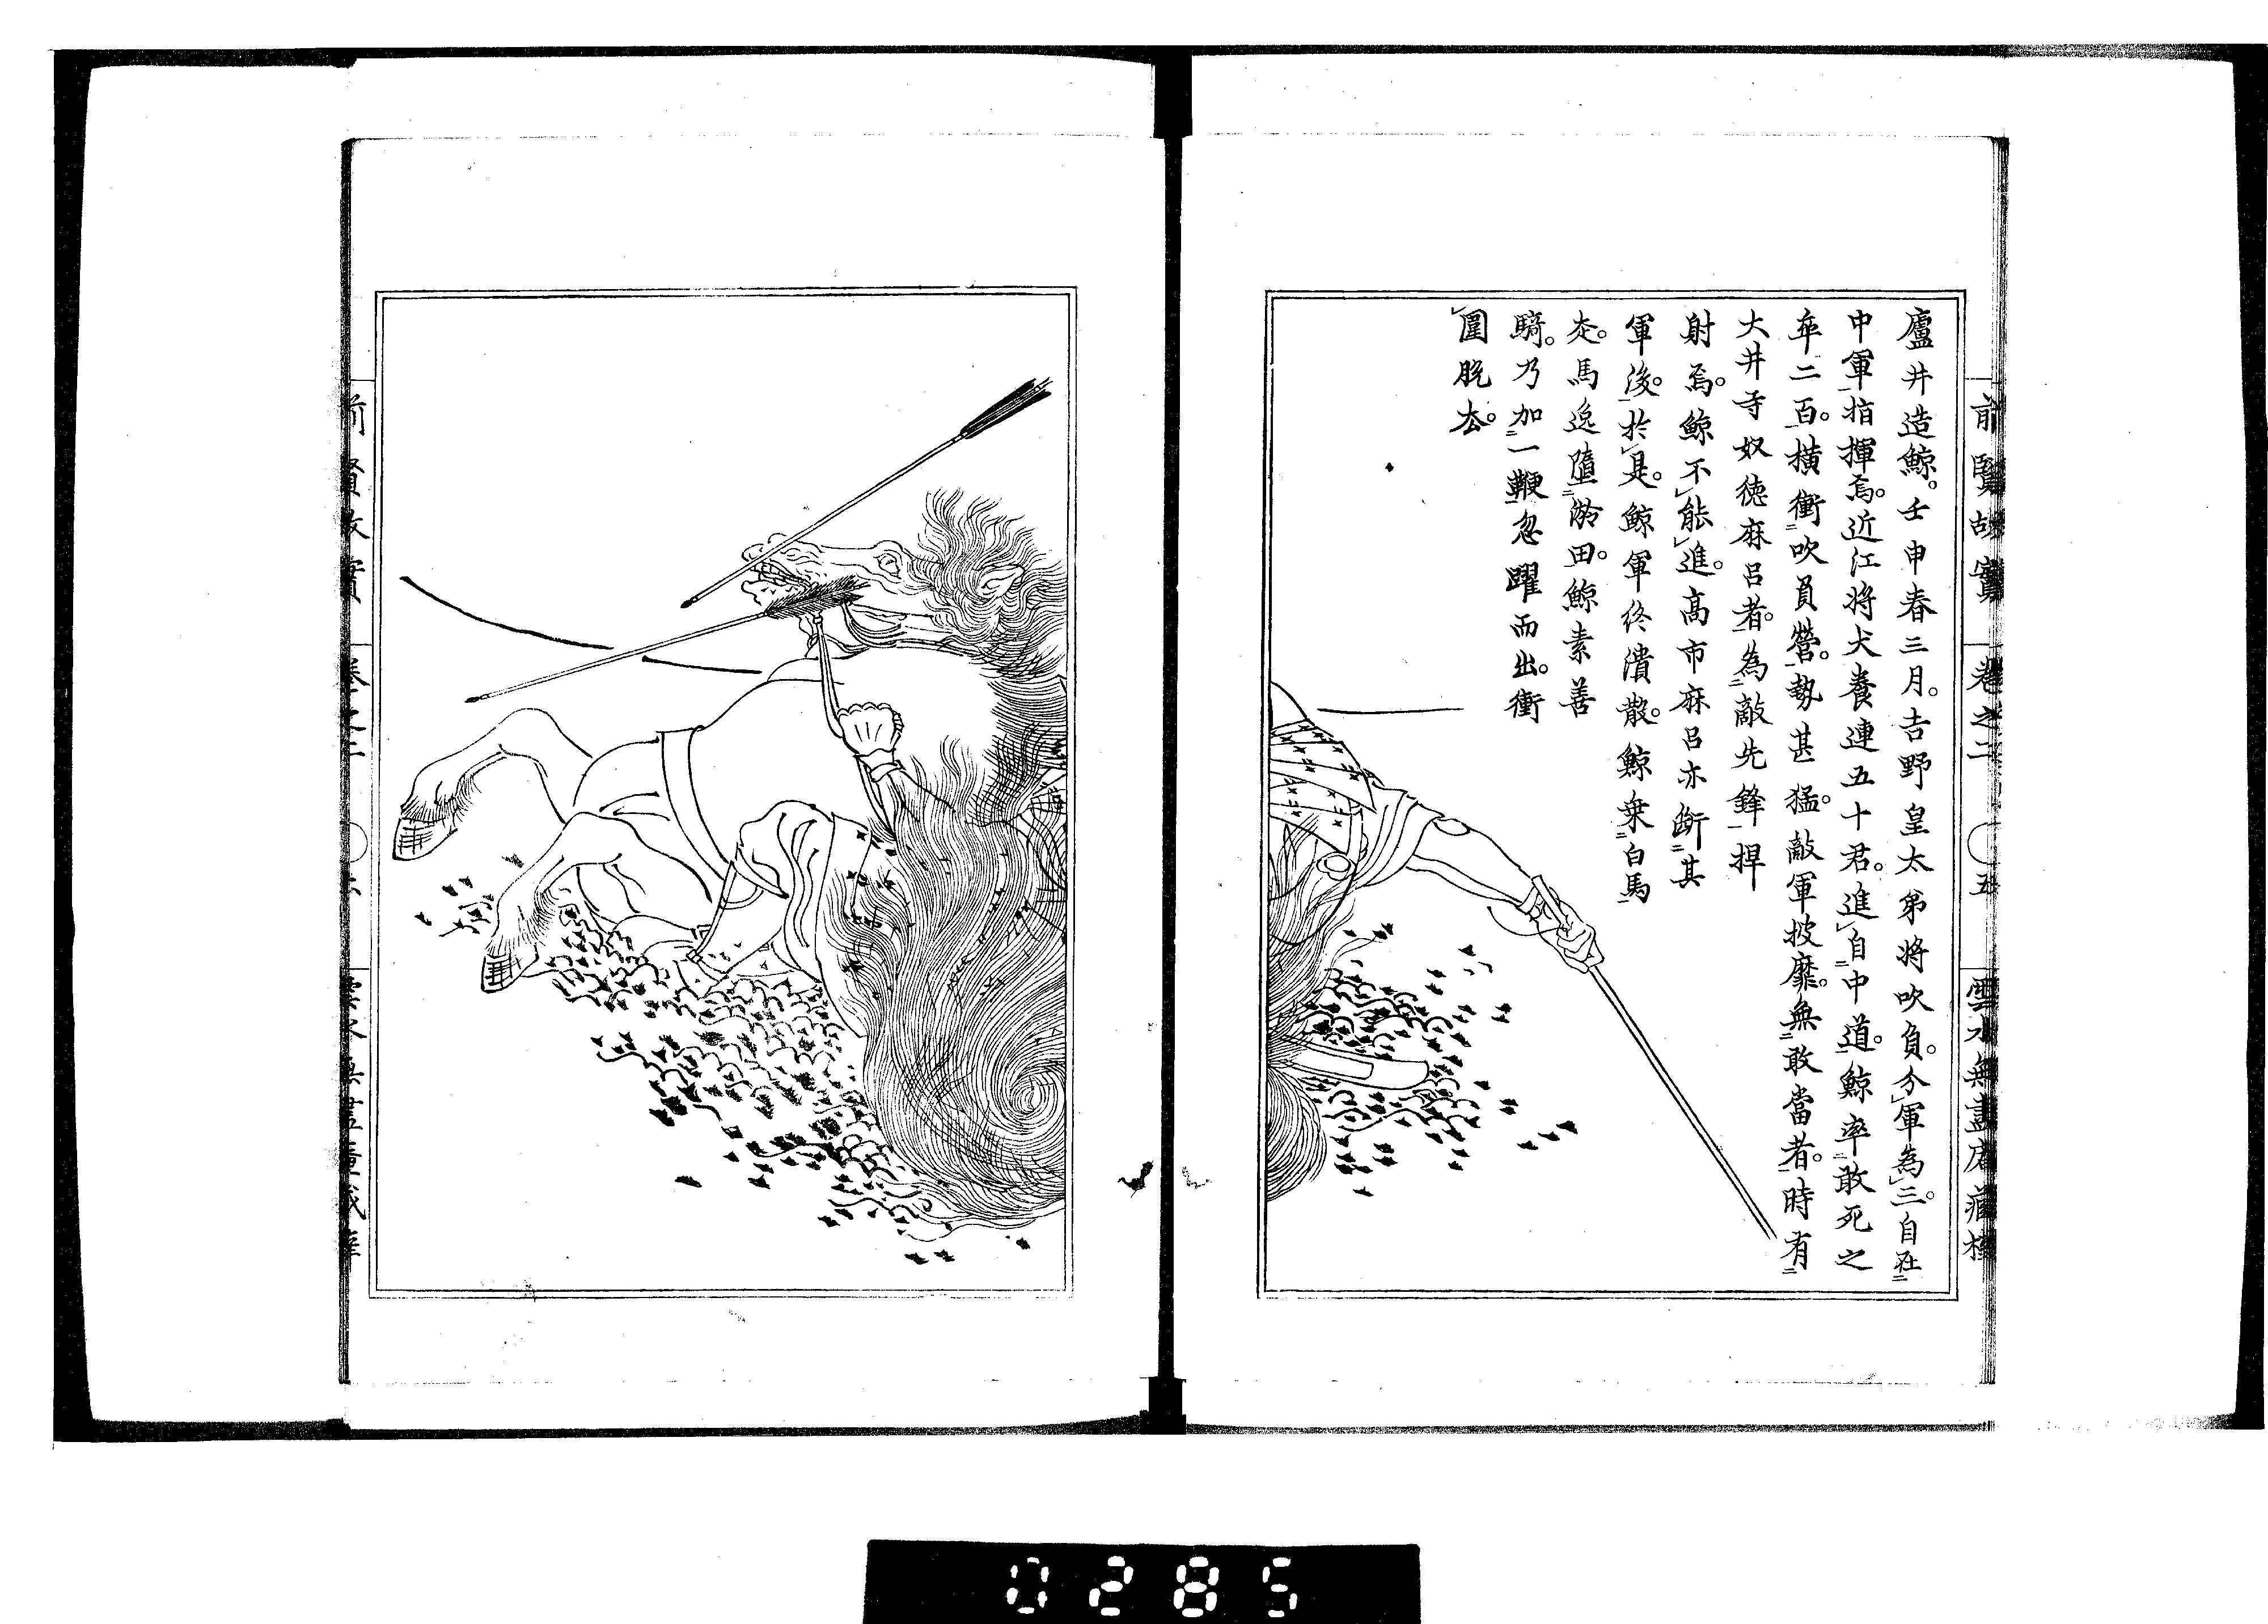 前賢故實 卷之二 〇五 雲水無盡庵藏梓
廬井造鯨。壬申春三月。吉野皇太弟将吹負。分軍為三。自在
中軍指揮焉。近江将犬養連五十君。進自中道。鯨率敢死之
卒二百。横衝吹負營。勢甚猛。敵軍披靡。無敢當者。時有
大井寺奴徳麻呂者。為敵先鋒捍
射焉。鯨不能進。高市麻呂亦斷其
軍後。於是。鯨軍終潰散。鯨乗白馬
走。馬逸墮泥田。鯨素善
騎。乃加一鞭忽躍而出。衝
圍脱去。
前賢故實 卷之二
0285